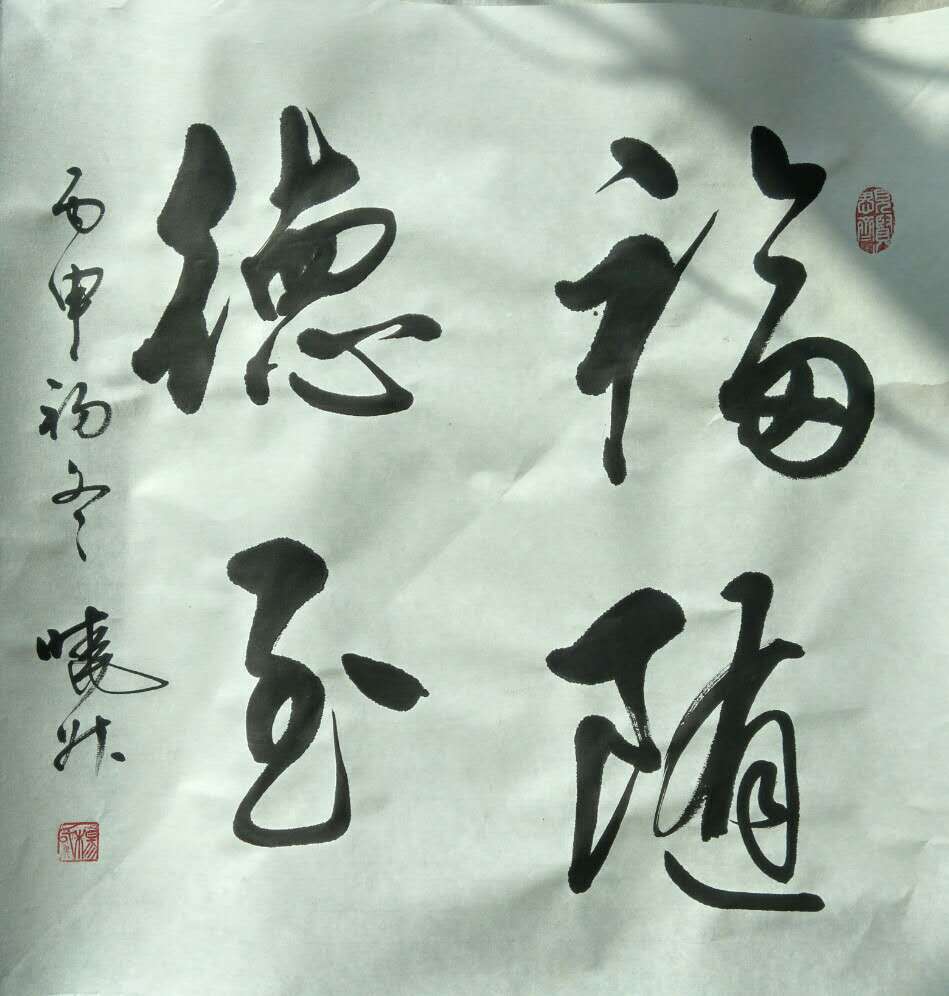 福随
德至
丙申初冬